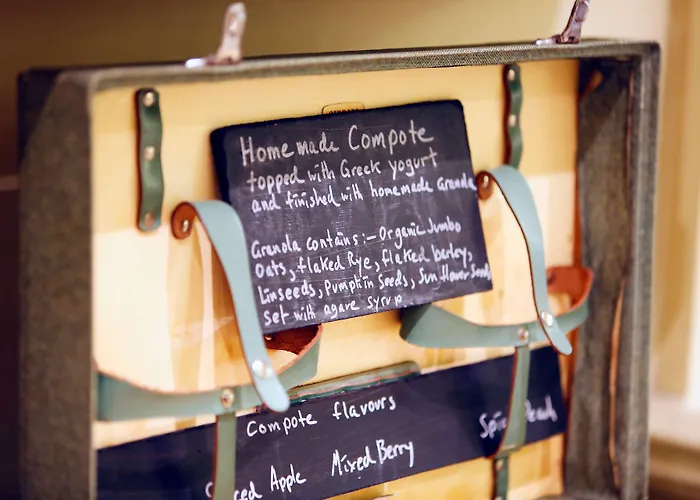 Homemade Compote
topped with Greek yogurt
and finished with homemade Granola
Granola contains:- Organic Jumbo
Oats, flaked Rye, flaked barley,
Linseeds, Pumpkin Seeds, Sunflower Seeds
Set with agare syrup
Compote flavours
Mixed Berry
Apple